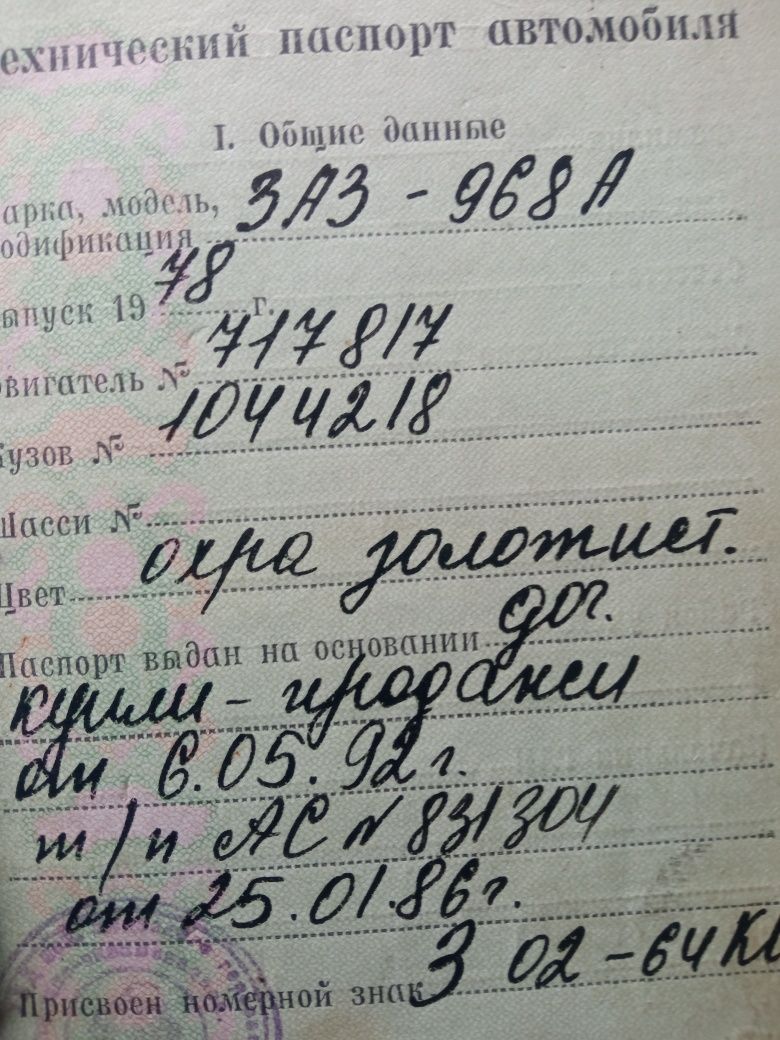 ехнический паспорт автомобиля
I. Общие данные
арка, модель,
одификация ЗАЗ - 968А
ыпуск 19 78 г.
вигатель № 717817
узов № 1044218
Шасси №
Цвет охра золотист.
Паспорт выдан на основании дог.
купли - продажи
от 6.05.92 г.
т/п АС № 831304
от 25.01.86 г.
Присвоен номерной знак З 02-64 К